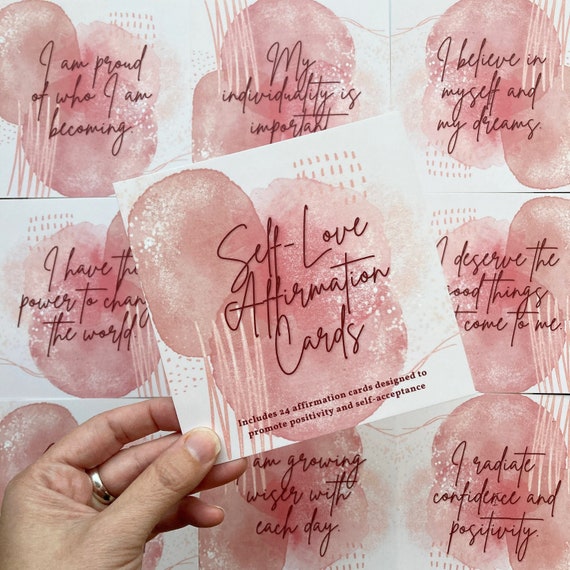 I am proud
of who I am
becoming.
My
individuality is
important
I believe in
myself and
my dreams.
Self-Love
Affirmation
Cards
Includes 24 affirmation cards designed to
promote positivity and self-acceptance
I have the
power to chang
the world
I deserve the
good things
come to me.
am growing
wiser with
each day.
I radiate
confidence and
positivity.